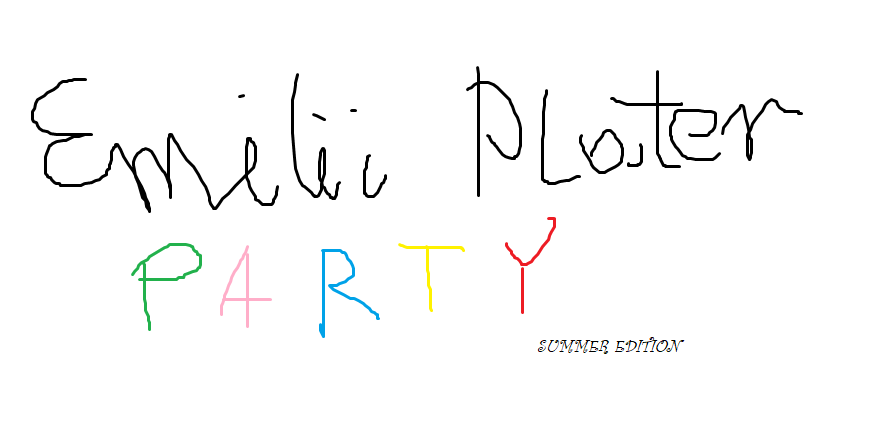 Emilii Plater
PARTY
SUMMER EDITION